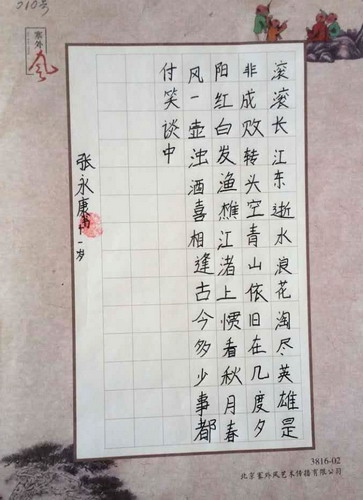 010号
塞外
风
滚滚长江东逝水浪花淘尽英雄是
非成败转头空青山依旧在几度夕
阳红白发渔樵江渚上惯看秋月春
风一壶浊酒喜相逢古今多少事都
付笑谈中
张永康十一岁
3816-02
北京塞外风艺术传播有限公司